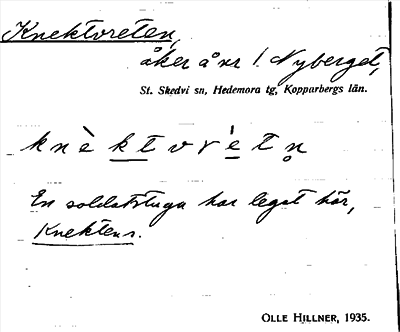 Knektvreten,
åker å nr 1 Nyberget,
St. Skedvi sn, Hedemora tg, Kopparbergs län.
knèktvrètn̥
En soldatstuga har legat här,
Knektens.
OLLE HILLNER, 1935.